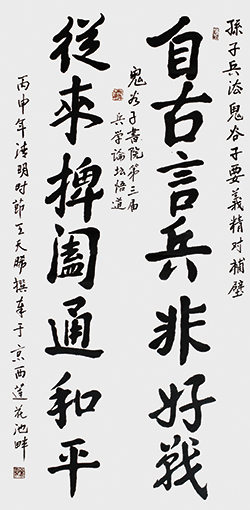 孫子兵法鬼谷子要義精对補壁
自古言兵非好戰
鬼谷子書院第三届
兵学論坛悟道
從來捭阖通和平
丙申年清明时節王天曦撰奉于京西莲花池畔